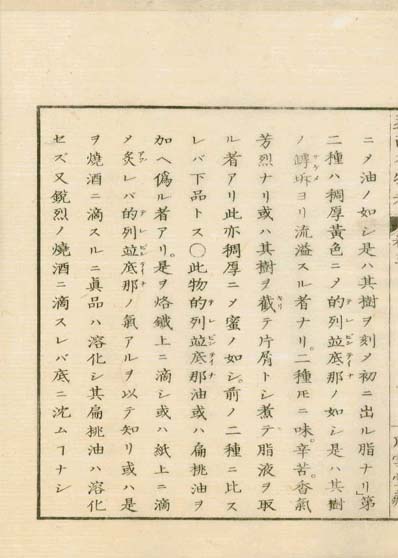 ニメ油ノ如シ是ハ其樹ヲ刻メ初ニ出ル脂ナリ」第
二種ハ稠厚黄色ニメ的列並底那ノ如シ是ハ其樹
ノ罅坼ヨリ流溢スル者ナリ。二種𪜈ニ味。辛苦。香氣
芳烈ナリ或ハ其樹ヲ截テ片屑トシ煮テ脂液ヲ取
ル者アリ此亦稠厚ニメ蜜ノ如シ。前ノ二種ニ比ス
レバ下品トス〇此物的列並底那油或ハ扁桃油ヲ
加ヘ偽ル者アリ。是ヲ烙鐵上ニ滴シ或ハ紙上ニ滴
メ炙レバ的列並底那ノ氣アルヲ以テ知リ或ハ是
ヲ燒酒ニ滴スルニ眞品ハ溶化シ其扁桃油ハ溶化
セズ又鋭烈ノ燒酒ニ滴スレバ底ニ沈ムヿナシ